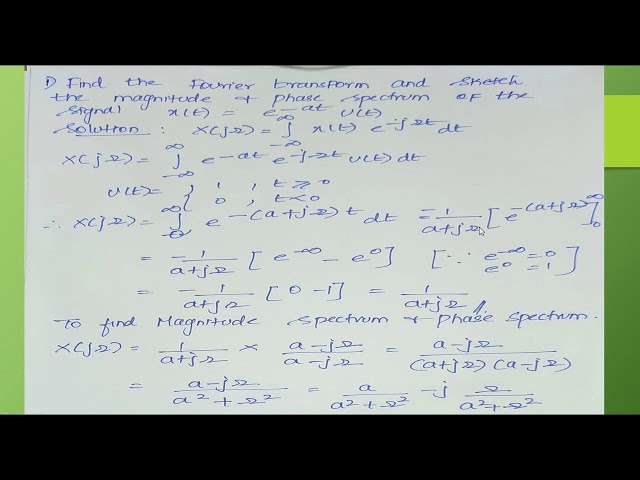 1) Find the Fourier transform and sketch
the magnitude & phase spectrum of the
signal x(t) = e^{-at} u(t)
Solution : X(jΩ) = ∫_{-∞}^{∞} x(t) e^{-jΩt} dt
X(jΩ) = ∫_{-∞}^{∞} e^{-at} e^{-jΩt} u(t) dt
u(t) = { 1 , t ≥ 0
0 , t < 0
∴ X(jΩ) = ∫_{0}^{∞} e^{-(a+jΩ)t} dt = -1/(a+jΩ) [e^{-(a+jΩ)}]_{0}^{∞}
= -1/(a+jΩ) [e^{-∞} - e^{0}] [∵ e^{-∞} = 0
e^{0} = 1]
= -1/(a+jΩ) [0 - 1] = 1/(a+jΩ) //
To find Magnitude spectrum & phase spectrum.
X(jΩ) = 1/(a+jΩ) × (a-jΩ)/(a-jΩ) = (a-jΩ)/((a+jΩ)(a-jΩ))
= (a-jΩ)/(a²+Ω²) = a/(a²+Ω²) - j Ω/(a²+Ω²)